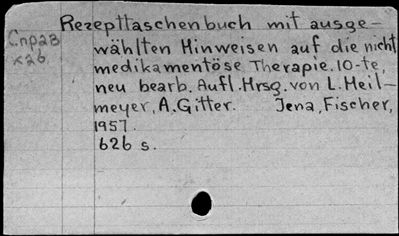 Rezepttaschenbuch mit ausge-
Справ
к26
wählten Hinweisen auf die nicht
medikamentöse Therapie. 10-te,
neu bearb. Aufl. Hrsg. von L. Heil-
meyer, A. Gitter. Jena, Fischer,
1957.
626 s.